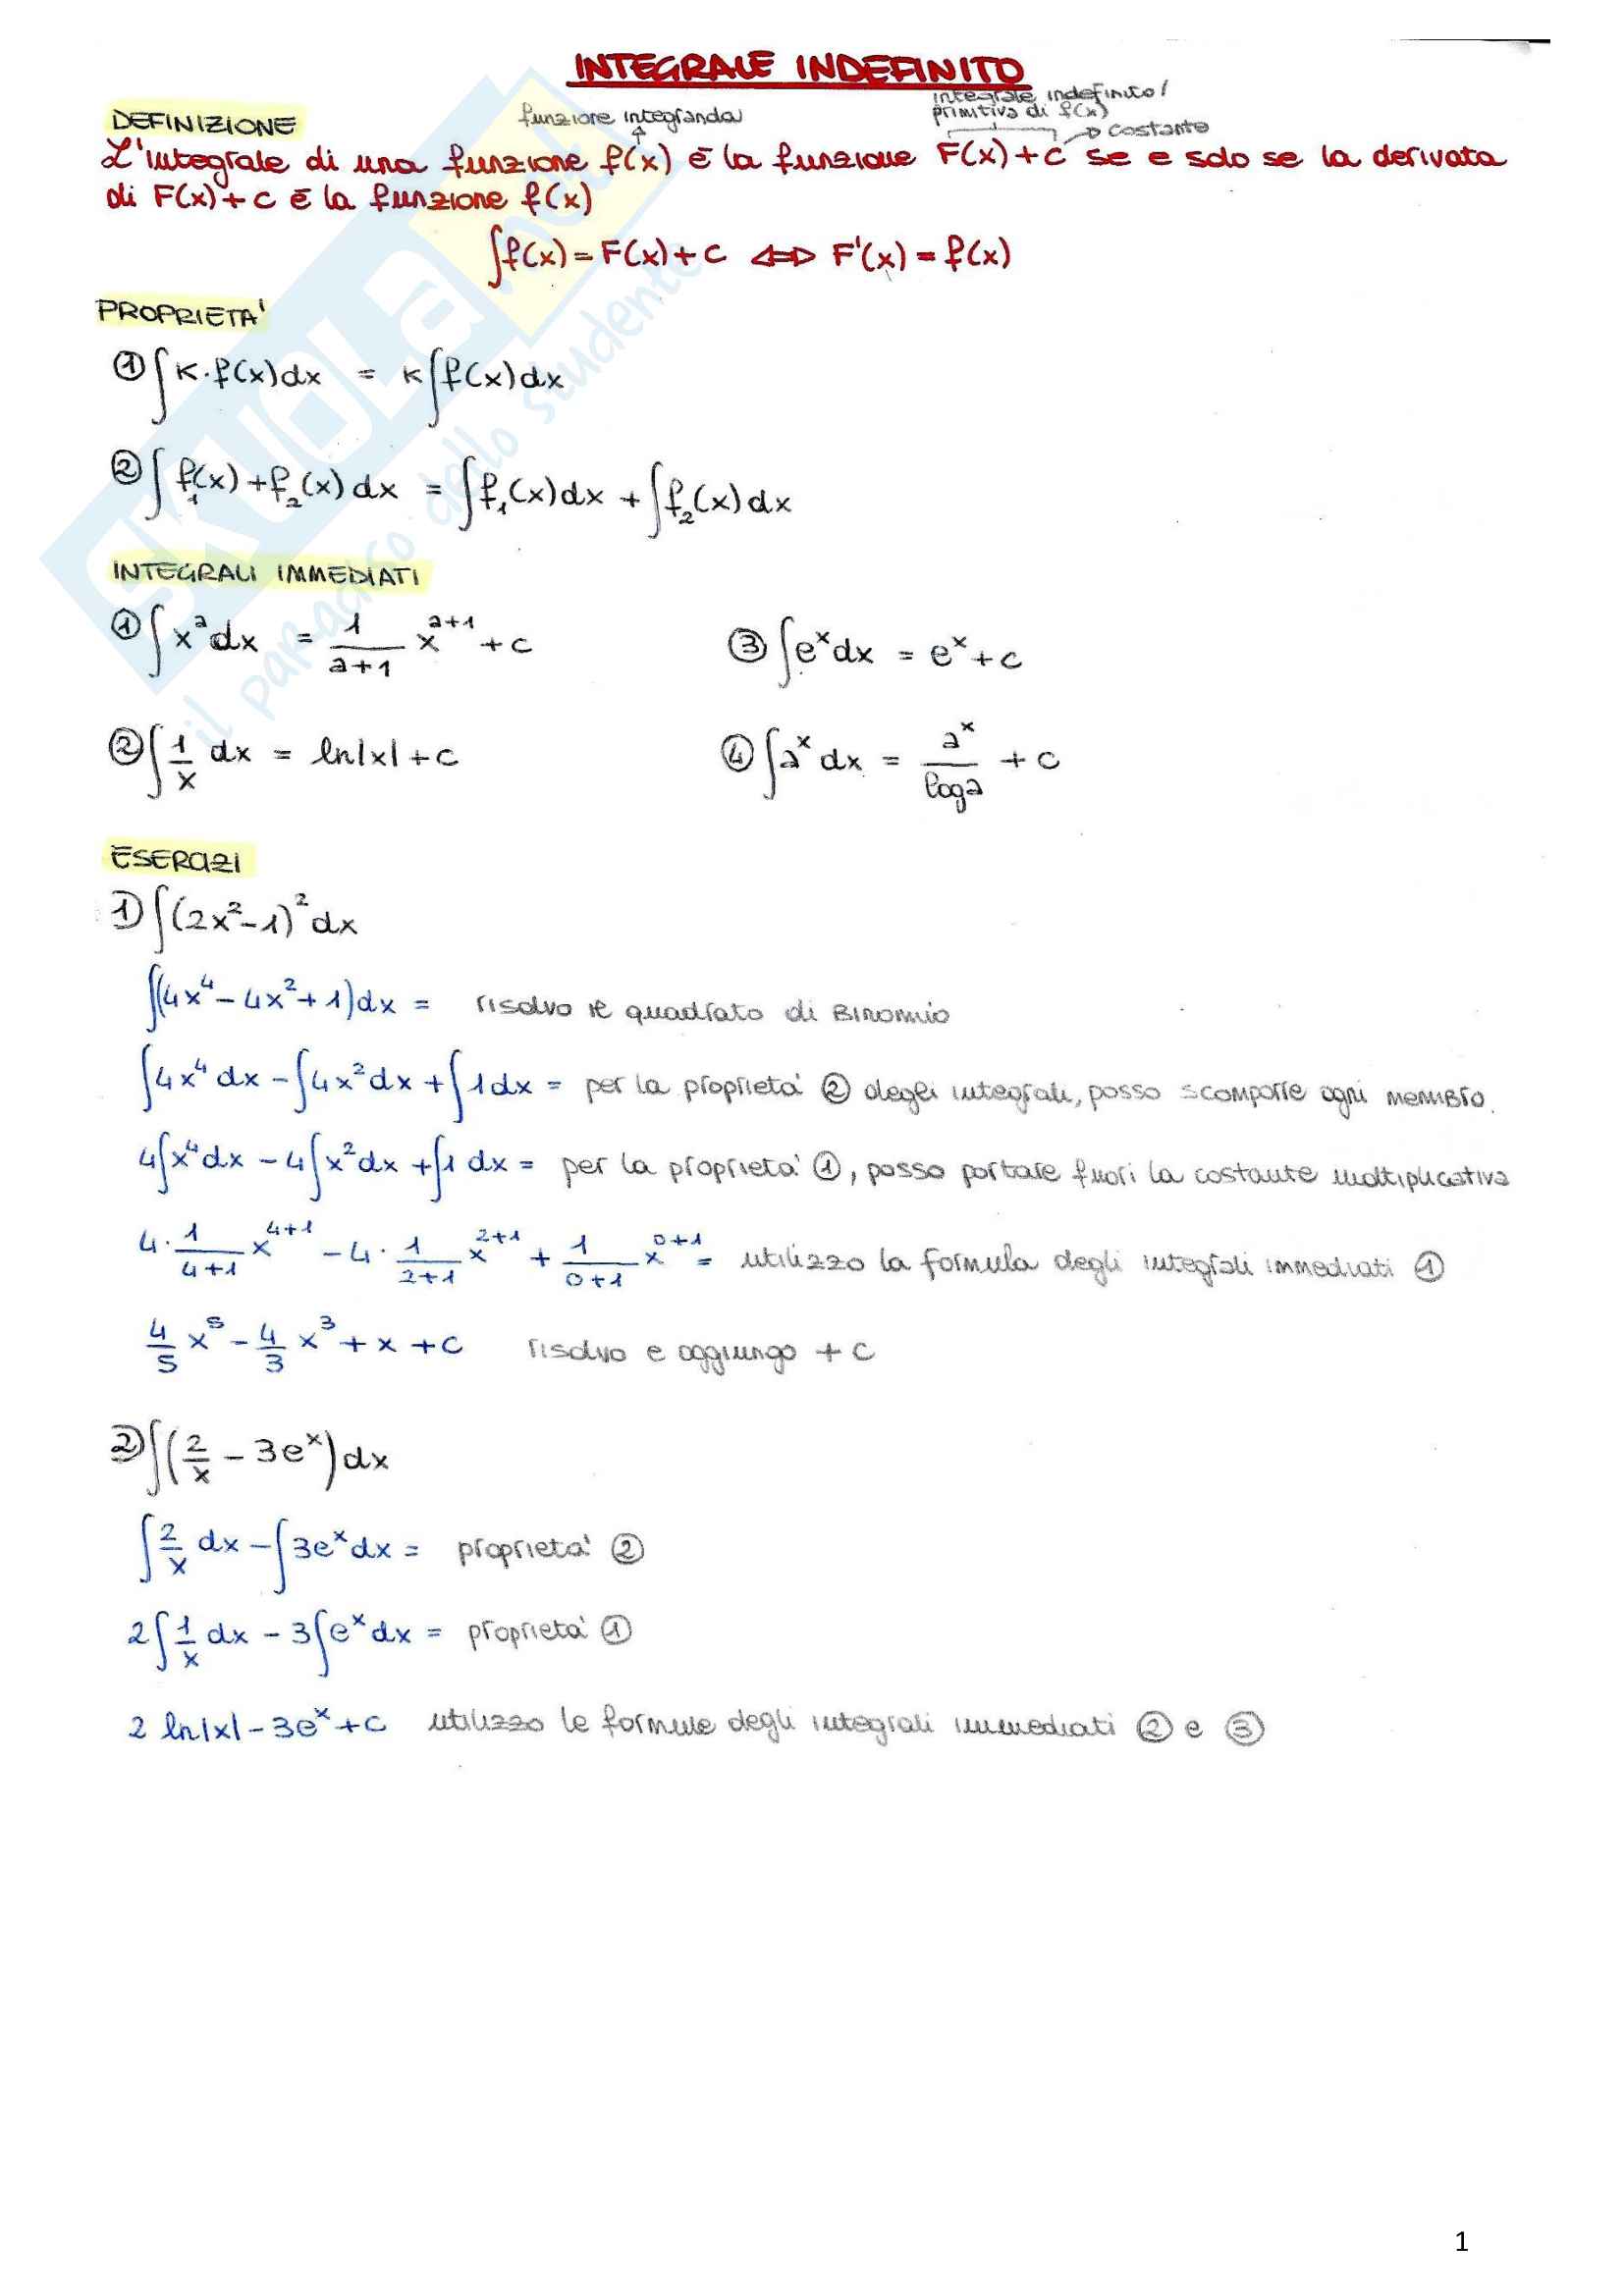 INTEGRALE INDEFINITO
DEFINIZIONE
funzione integranda
integrale indefinito/
primitiva di f(x)
costante
L'integrale di una funzione f(x) è la funzione F(x)+c se e solo se la derivata
di F(x)+c è la funzione f(x)
∫f(x) = F(x)+c ⟺ F'(x) = f(x)
PROPRIETA'
① ∫k·f(x)dx = k∫f(x)dx
② ∫f₁(x)+f₂(x)dx = ∫f₁(x)dx + ∫f₂(x)dx
INTEGRALI IMMEDIATI
① ∫xᵃdx = 1/(a+1) x^(a+1) + c
③ ∫eˣdx = eˣ+c
② ∫1/x dx = ln|x|+c
④ ∫aˣdx = aˣ/loga + c
ESERCIZI
1) ∫(2x²-1)²dx
∫(4x⁴-4x²+1)dx = risolvo il quadrato di binomio
∫4x⁴dx - ∫4x²dx + ∫1dx = per la proprietà ② degli integrali, posso scomporre ogni membro.
4∫x⁴dx - 4∫x²dx + ∫1dx = per la proprietà ①, posso portare fuori la costante moltiplicativa
4·1/(4+1) x^(4+1) - 4·1/(2+1) x^(2+1) + 1/(0+1) x^(0+1) = utilizzo la formula degli integrali immediati ①
4/5 x⁵ - 4/3 x³ + x + c risolvo e aggiungo + c
2) ∫(2/x - 3eˣ)dx
∫2/x dx - ∫3eˣdx = proprietà ②
2∫1/x dx - 3∫eˣdx = proprietà ①
2 ln|x| - 3eˣ + c utilizzo le formule degli integrali immediati ② e ③
SKUOLA.net
il paradiso dello studente
1